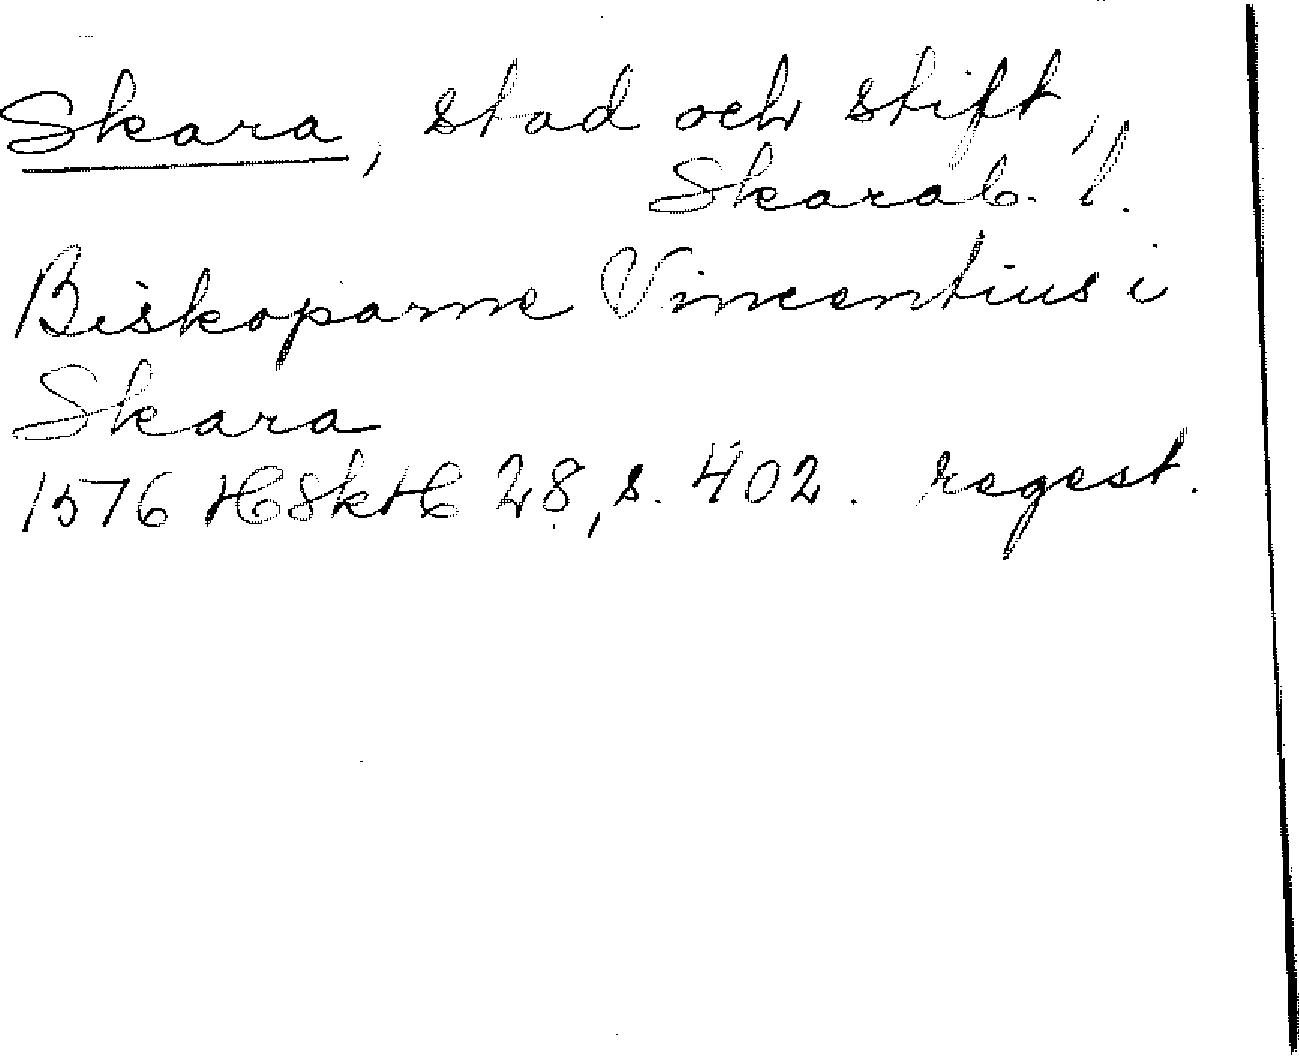 Skara, stad och stift,
Skarab. l.
Biskoparne Vincentius i
Skara
1576 HSkH 28, s. 402. regest.